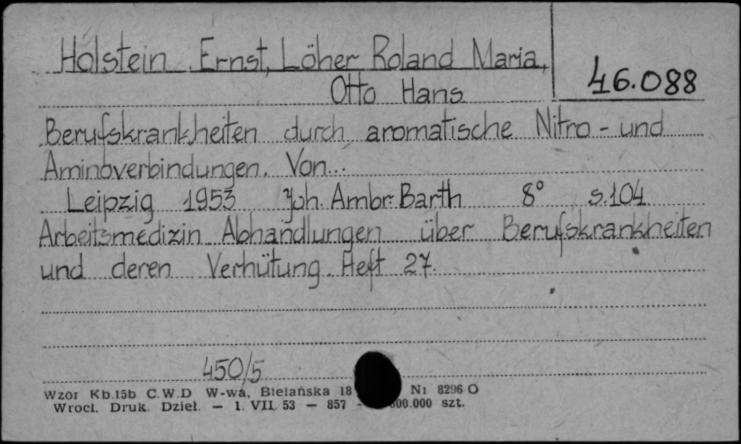 Holstein Ernst, Löher Roland Maria,
Otto Hans
46.088
Berufskrankheiten durch aromatische Nitro- und
Aminoverbindungen. Von...
Leipzig 1953 Joh. Ambr. Barth 8° s.104
Arbeitsmedizin Abhandlungen über Berufskrankheiten
und deren Verhütung Heft 27.
450/5
Wzór Kb.15b C.W.D W-wa, Bielańska 18 Nr 8296 O
Wrocł. Druk. Dzieł. — 1. VII 53 — 857 — 000.000 szt.